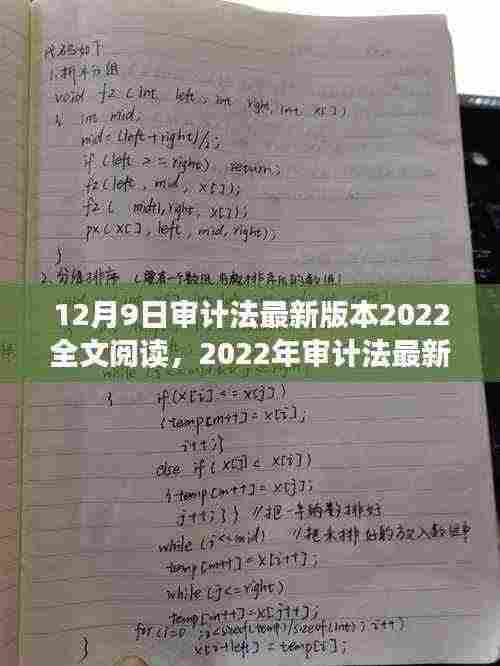 代码如下
1.折半分组
void fz (int left, int right, int x[])
{ int mid;
mid=(left+right)/2;
if (left >= right) return;
fz(left, mid, x[]);
fz( mid+1, right, x[]);
px(x[], left, mid, right);
}
2.分组排序
12月9日审计法最新版本2022
全文阅读，2022年审计法最新
{ if(x[i]<=x[j])
{temp[m++]=x[i];
i++;}
else if(x[j]<x[i])
{temp[m++]=x[j];
j++;}} //把一半的数排好
while (i<=mid)
temp[m++]=x[i++];
while(j<=right)
temp[m++]=x[j++];
for(i=0;i<sizeof(temp)/sizeof(int);i++)
} x[i+left]=temp[i];